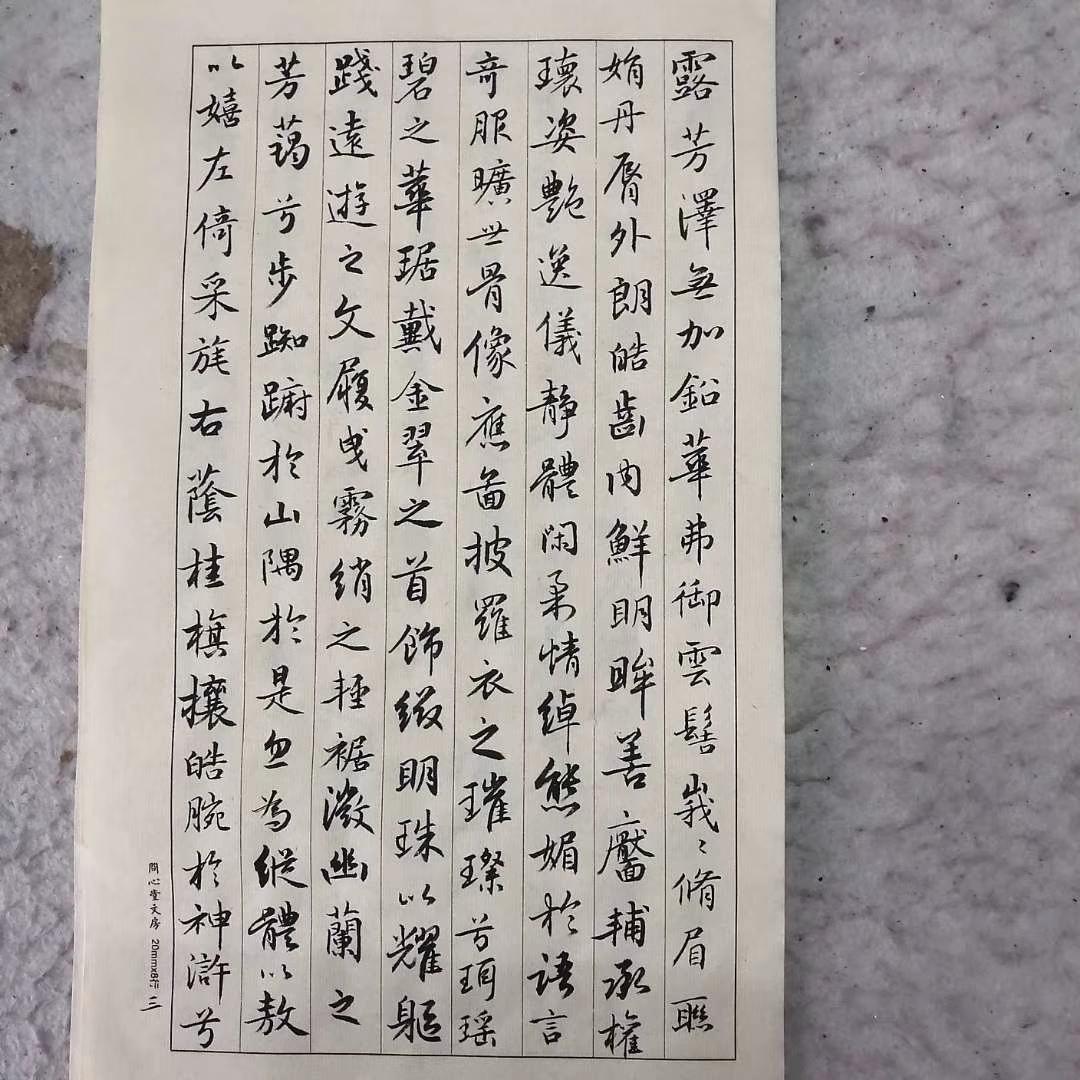 露芳澤無加鉛華弗御雲髻峩〻脩眉聯
娟丹脣外朗皓齒内鮮明眸善靨輔承權
瓌姿艶逸儀静體閑柔情綽態媚於語言
奇服曠世骨像應圖披羅衣之璀璨兮珥瑶
碧之華琚戴金翠之首飾綴明珠以耀軀
踐遠遊之文履曳霧綃之輕裾微幽蘭之
芳藹兮步踟蹰於山隅於是忽為縱體以敖
以嬉左倚采旄右蔭桂旗攘皓腕於神滸兮
問心堂文房 20mmx8行 三